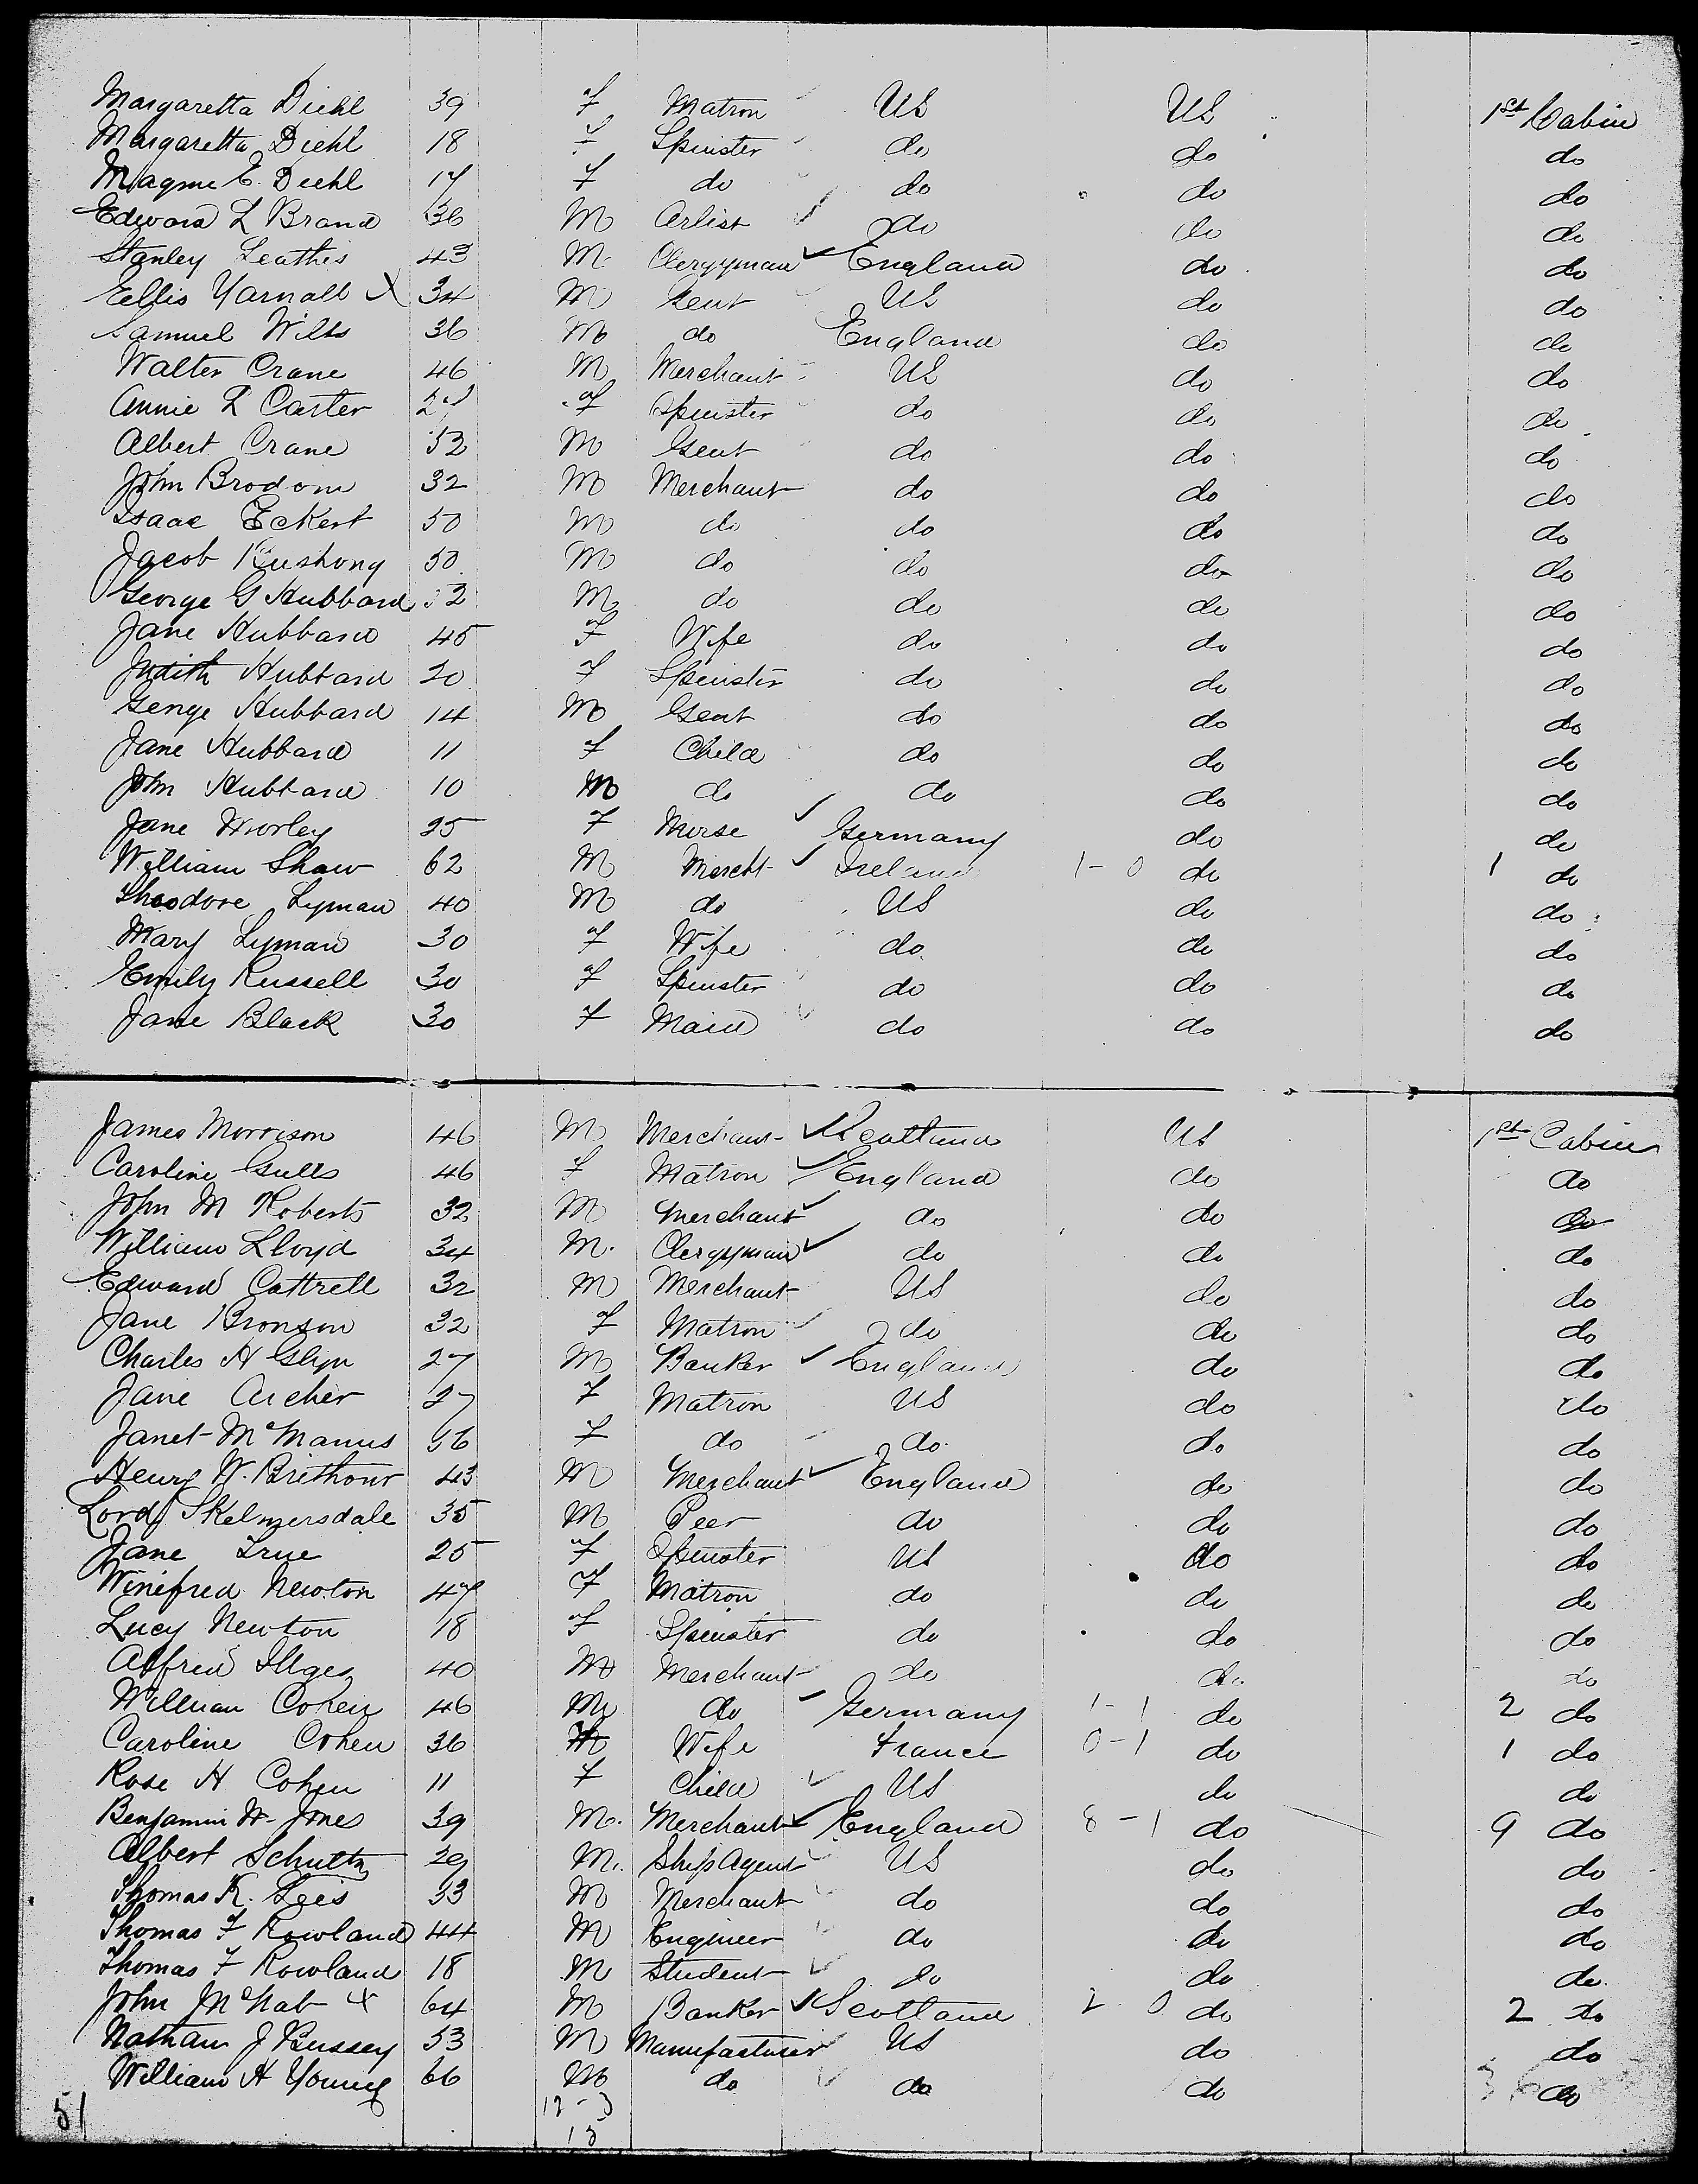 Margaretta Diehl 39 F Matron US US 1st Cabin
Margaretta Diehl 18 F Spinster do do do
E. Diehl 17 F do do do do
Edward L Brand 36 M Artist do do do
Stanley Leathes 43 M Clergyman England do do
Ellis Yarnall X 34 M Gent US do do
Samuel Wills 36 M do England do do
Walter Crane 46 M Merchant US do do
Annie L Carter F Spinster do do do
Albert Crane 52 M Gent do do do
John Brodom 32 M Merchant do do do
Isaac Eckert 50 M do do do do
Jacob Kushong 50 M do do do do
George G Hubbard 52 M do do do do
Jane Hubbard 45 F Wife do do do
Judith Hubbard 20 F Spinster do do do
George Hubbard 14 M Gent do do do
Jane Hubbard 11 F Child do do do
John Hubbard 10 M do do do do
Jane Worley 25 F Nurse Germany do do
William Shaw 62 M Mercht Ireland 1-0 do 1 do
Theodore Lyman 40 M do US do do
Mary Lyman 30 F Wife do do do
Emily Russell 30 F Spinster do do do
Jane Black 30 F Maid do do do
James Morrison 46 M Merchant Scotland US 1st Cabin
Caroline 46 F Matron England do do
John M Roberts 32 M Merchant do do do
William Lloyd 34 M. Clergyman do do do
Edward Cottrell 32 M Merchant US do do
Jane Bronson 32 F Matron do do do
Charles H Glyn 27 M Banker England do do
Jane Archer 27 F Matron US do do
Janet McManus 56 F do do do do
Henry W. Brithour 43 M Merchant England do do
Lord Skelmersdale 35 M Peer do do do
Jane True 25 F Spinster US do do
Winifred Newton 47 F Matron do do do
Lucy Newton 18 F Spinster do do do
Alfred Illges 40 M Merchant do do do
William Cohen 46 M do Germany 1-1 do 2 do
Caroline Cohen 36 Wife France 0-1 do 1 do
Rose H Cohen 11 F Child US do do
Benjamin W. Jones 39 M. Merchant England 8-1 do 9 do
Albert Schultz 29 M. Ship Agent US do do
Thomas K. Lees 33 M Merchant do do do
Thomas F Rowland 44 M Engineer do do do
Thomas F Rowland 18 M Student do do do
John McNab X 64 M Banker Scotland 2 0 do 2 do
Nathan J Bussey 53 M Manufacturer US do do
William H Young 66 M do do do do
51 12-3
15